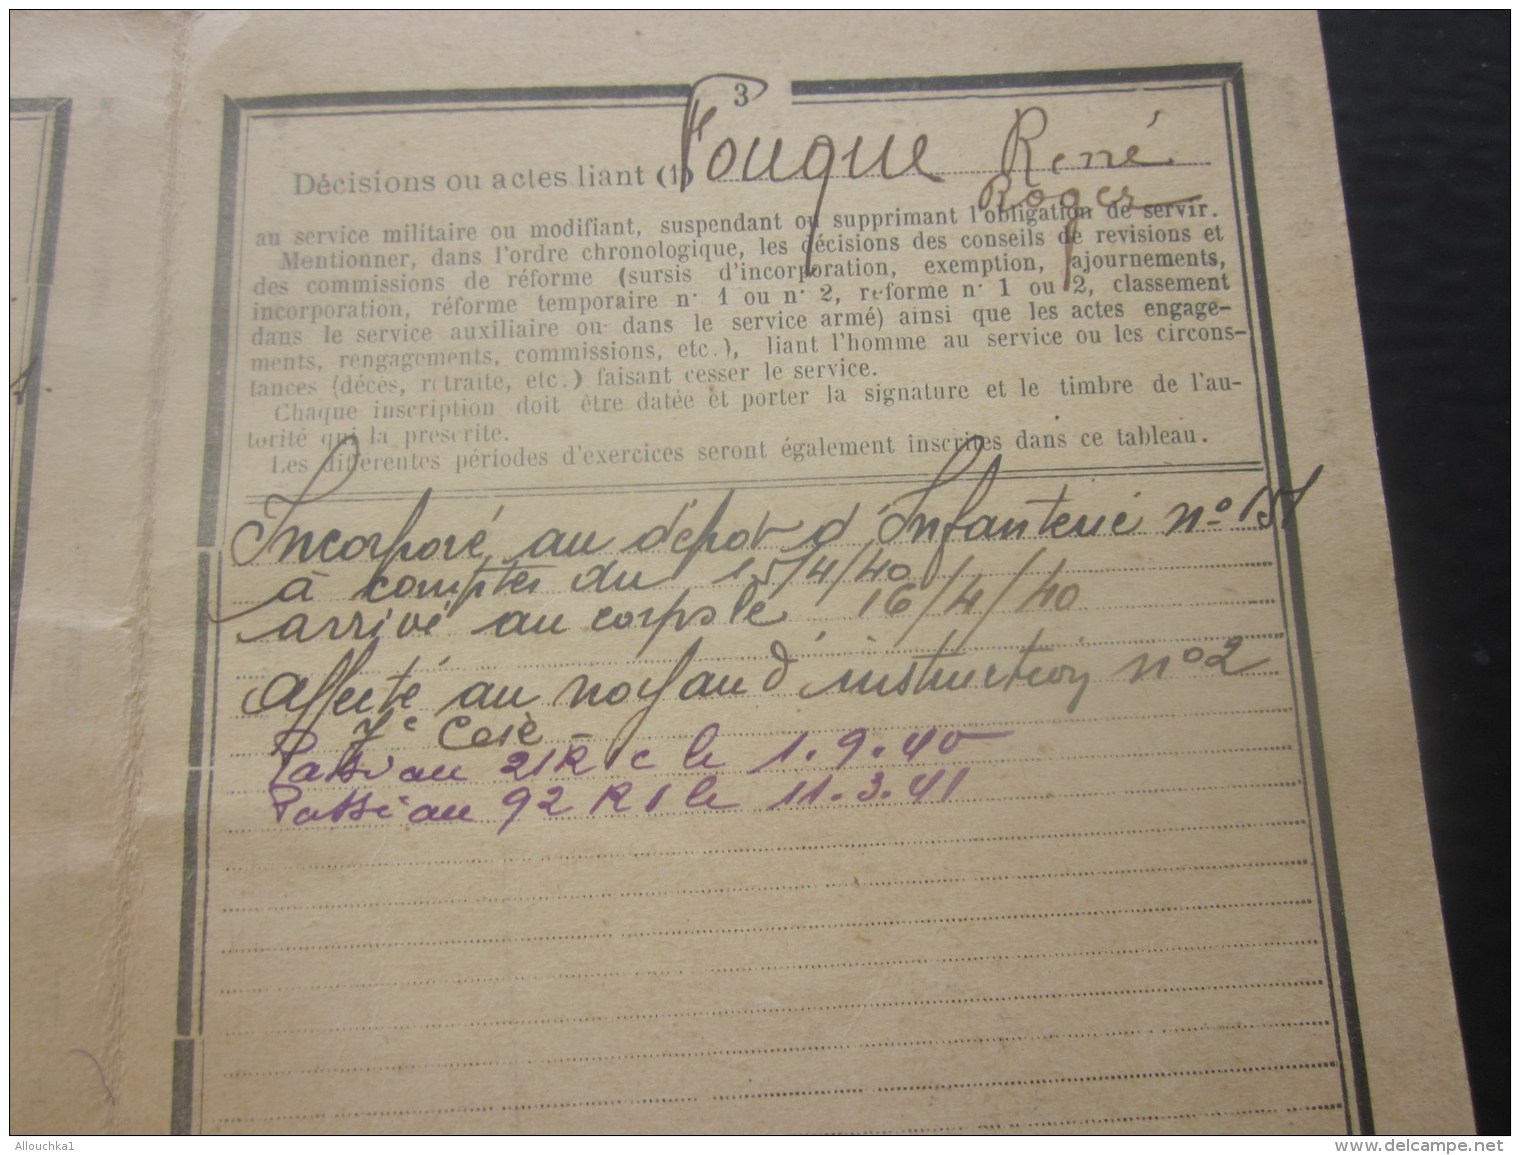 3
Décisions ou actes liant (1) Fouque René
Roger
au service militaire ou modifiant, suspendant ou supprimant l'obligation de servir.
Mentionner, dans l'ordre chronologique, les décisions des conseils de revisions et
des commissions de réforme (sursis d'incorporation, exemption, ajournements,
incorporation, réforme temporaire n° 1 ou n° 2, reforme n° 1 ou 2, classement
dans le service auxiliaire ou dans le service armé) ainsi que les actes engage-
ments, rengagements, commissions, etc.), liant l'homme au service ou les circons-
tances (décès, retraite, etc.) faisant cesser le service.
Chaque inscription doit être datée et porter la signature et le timbre de l'au-
torité qui la prescrite.
Les différentes périodes d'exercices seront également inscrites dans ce tableau.
Incorporé au dépot d'Infanterie n° 151
à compter du 15/4/40
arrivé au corps le 16/4/40
Affecté au noyau d'instruction n° 2
7e Cie
Passé au 21 R I C le 1.9.40
Passé au 92 R I le 11.3.41
Allouchka1
www.delcampe.net